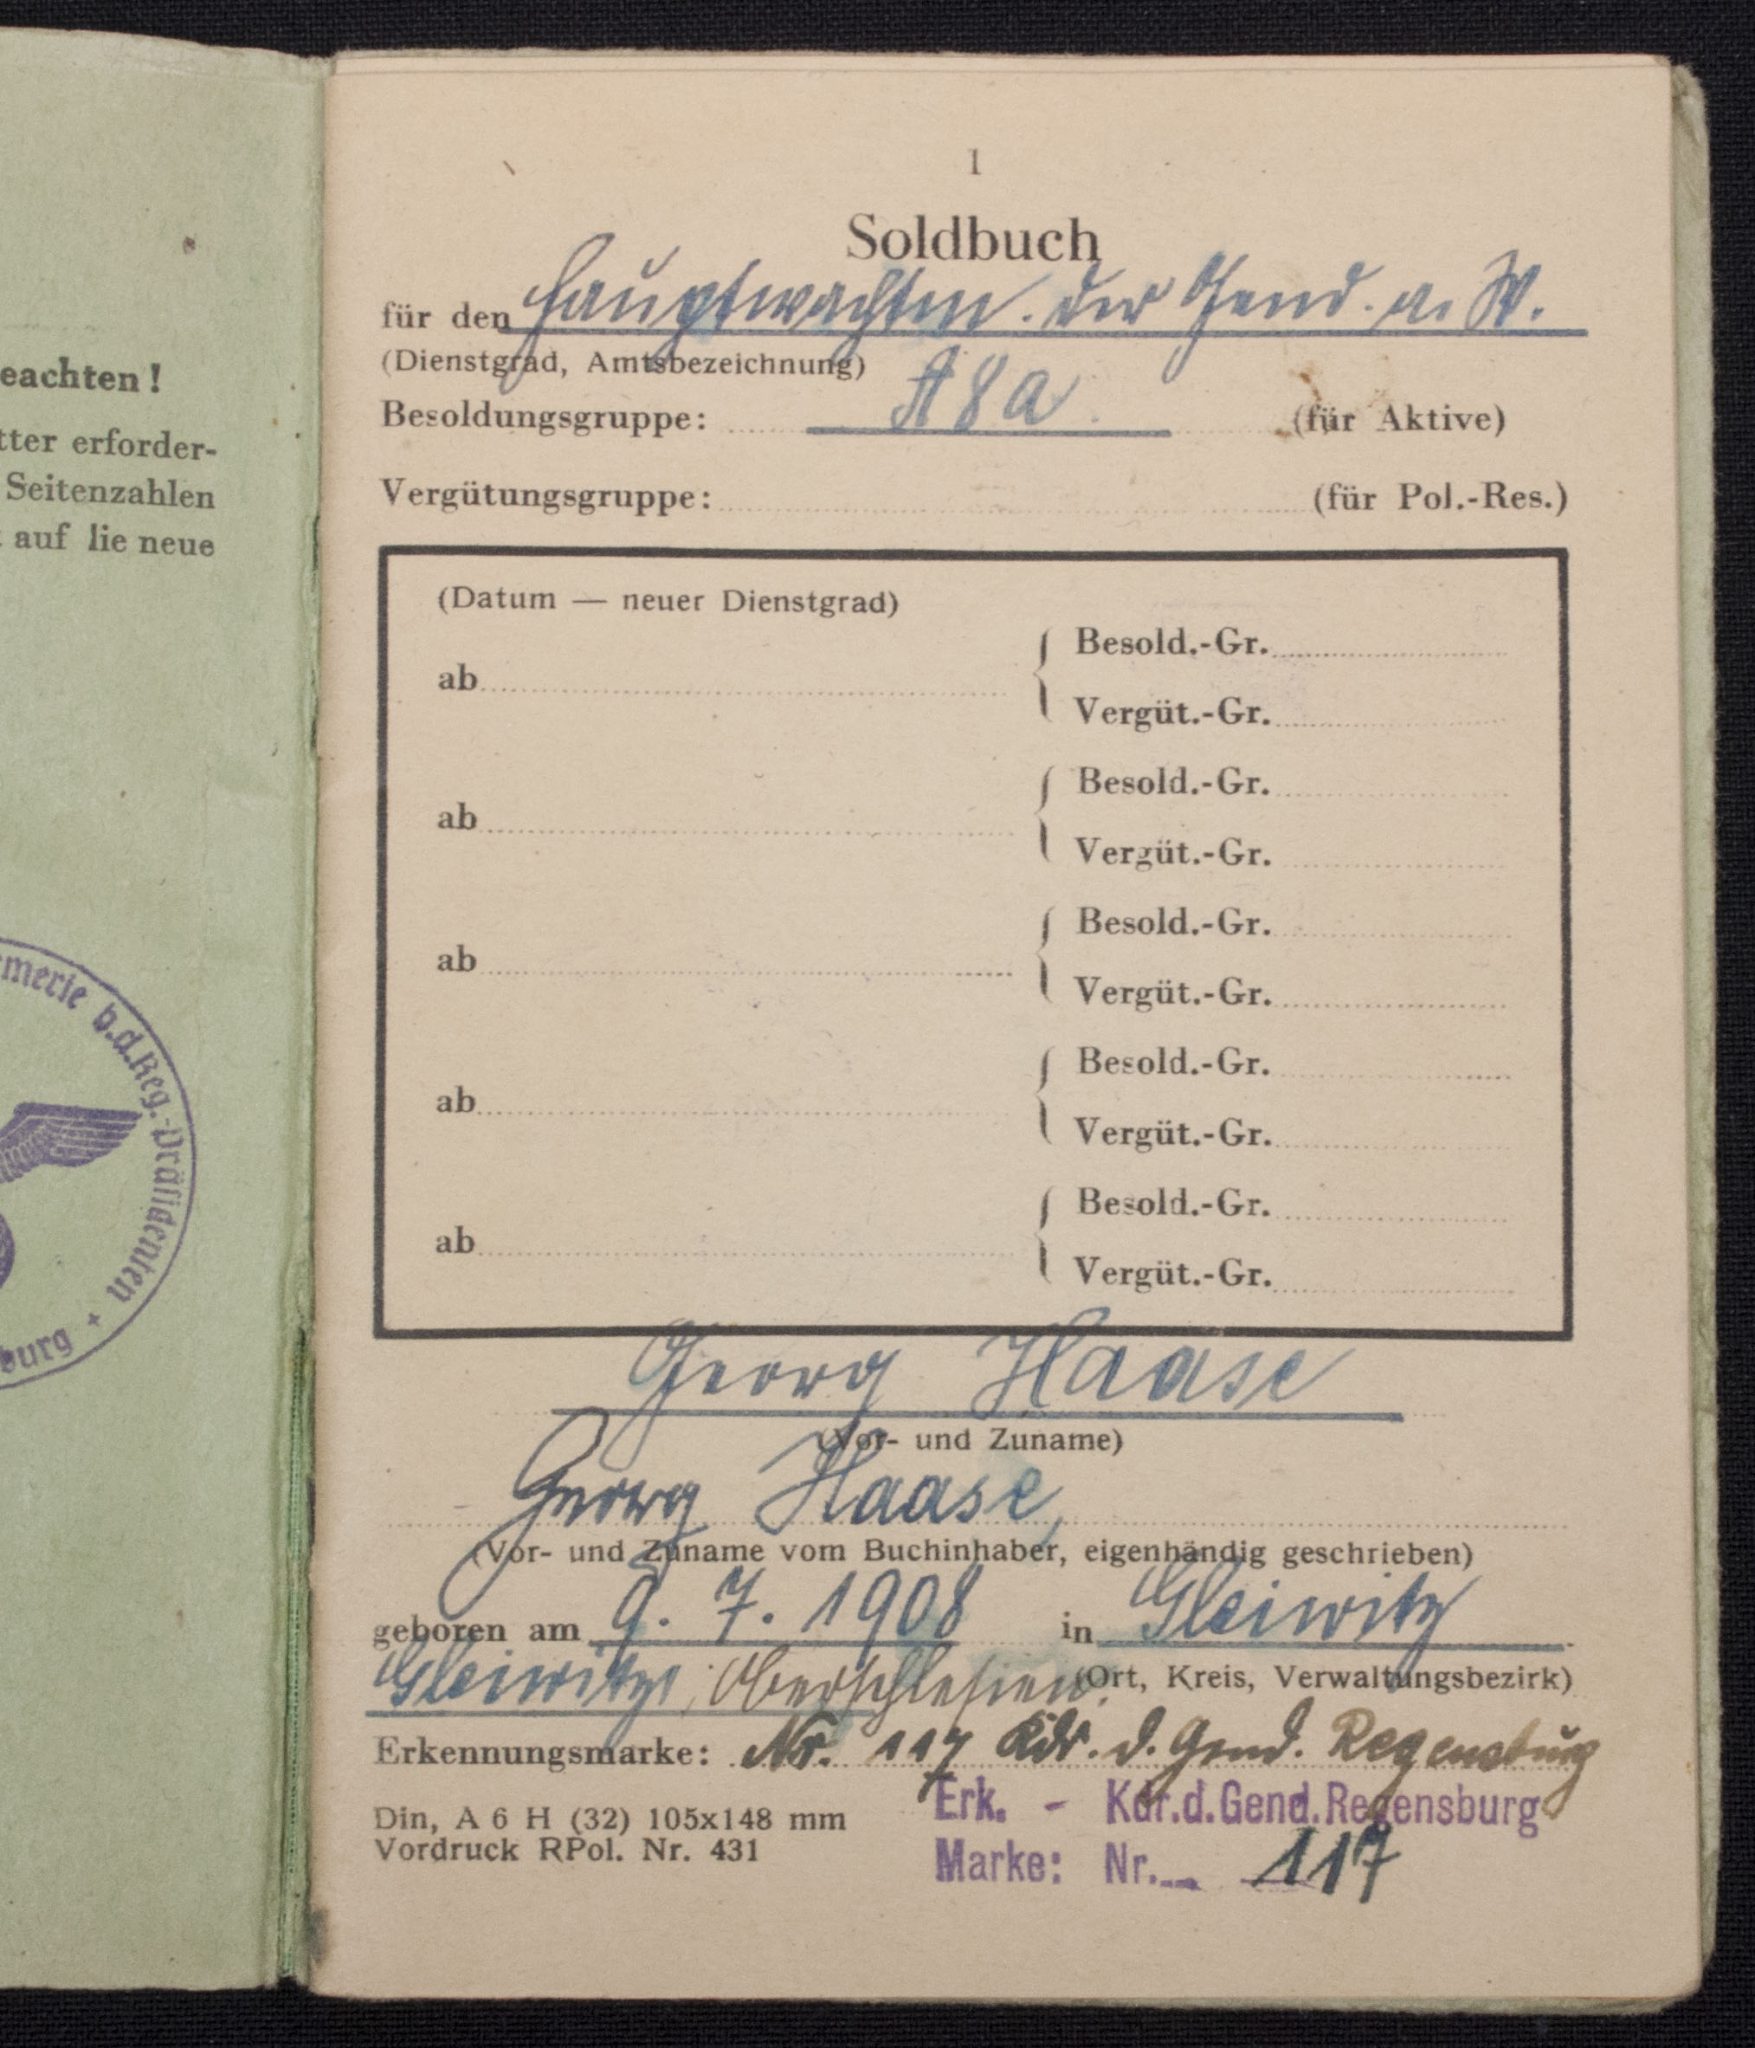 eachten!
tter erforder-
Seitenzahlen
auf lie neue
merie b.d.Reg.-Präsidenten +
burg
1
Soldbuch
für den Hauptwachtm. der Gend. a. W.
(Dienstgrad, Amtsbezeichnung)
Besoldungsgruppe: A 8 a (für Aktive)
Vergütungsgruppe: (für Pol.-Res.)
(Datum — neuer Dienstgrad)
Besold.-Gr.
ab
Vergüt.-Gr.
Besold.-Gr.
ab
Vergüt.-Gr.
Besold.-Gr.
ab
Vergüt.-Gr.
Besold.-Gr.
ab
Vergüt.-Gr.
Besold.-Gr.
ab
Vergüt.-Gr.
Georg Haase
(Vor- und Zuname)
Georg Haase
(Vor- und Zuname vom Buchinhaber, eigenhändig geschrieben)
geboren am 9. 7. 1908 in Gleiwitz
Gleiwitz, Oberschlesien. (Ort, Kreis, Verwaltungsbezirk)
Erkennungsmarke: Nr. 117 Kdr. d. Gend. Regensburg
Din, A 6 H (32) 105x148 mm
Vordruck RPol. Nr. 431
Erk. - Kdr.d.Gend.Regensburg
Marke: Nr. 117